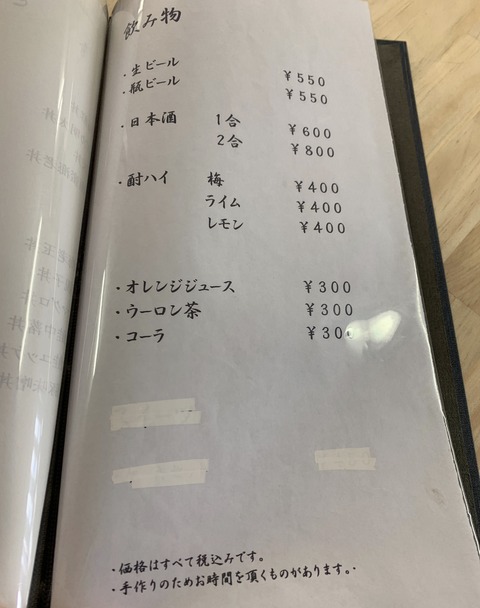 飲み物
・生ビール ¥550
・瓶ビール ¥550
・日本酒 1合 ¥600
2合 ¥800
・酎ハイ 梅 ¥400
ライム ¥400
レモン ¥400
・オレンジジュース ¥300
・ウーロン茶 ¥300
・コーラ ¥30
・価格はすべて税込みです。
・手作りのためお時間を頂くものがあります。・